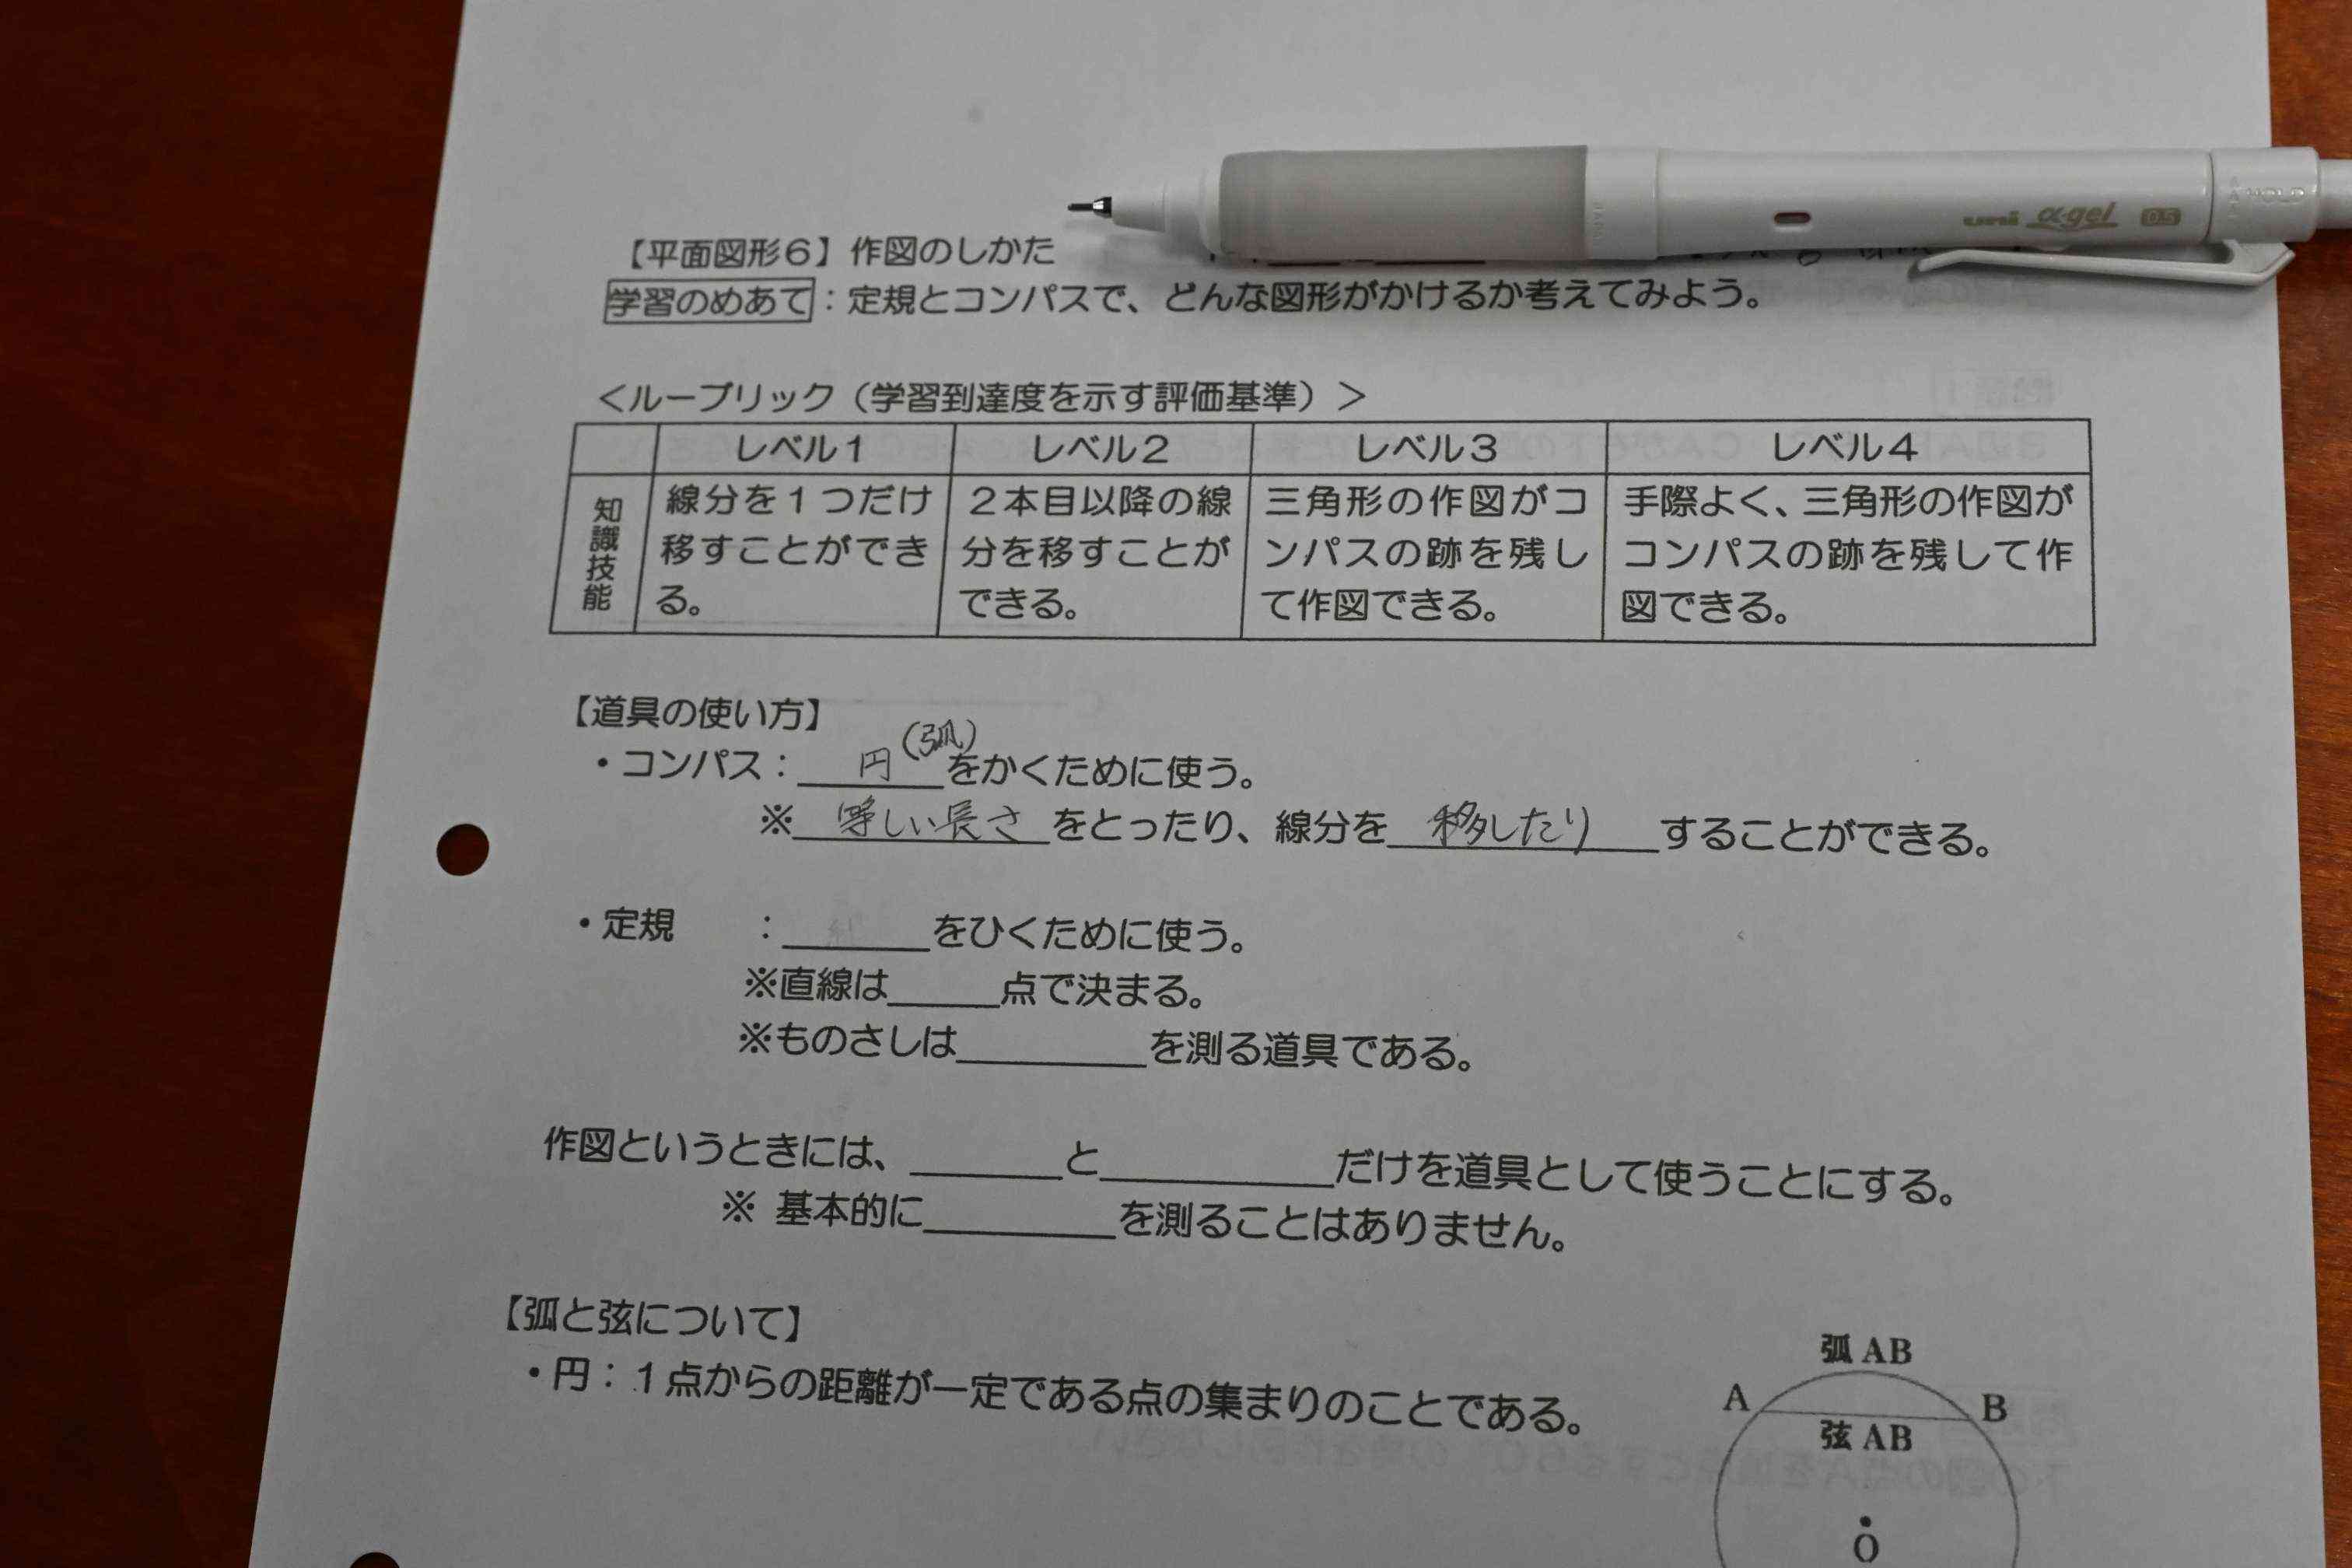 uni α-gel 0.5
HOLD
【平面図形6】作図のしかた
学習のめあて：定規とコンパスで、どんな図形がかけるか考えてみよう。
＜ルーブリック（学習到達度を示す評価基準）＞
レベル1 レベル2 レベル3 レベル4
知識技能
線分を1つだけ移すことができる。
2本目以降の線分を移すことができる。
三角形の作図がコンパスの跡を残して作図できる。
手際よく、三角形の作図がコンパスの跡を残して作図できる。
【道具の使い方】
・コンパス：円(弧)をかくために使う。
※等しい長さをとったり、線分を移したりすることができる。
・定規 ：＿＿＿をひくために使う。
※直線は＿＿＿点で決まる。
※ものさしは＿＿＿を測る道具である。
作図というときには、＿＿＿と＿＿＿だけを道具として使うことにする。
※ 基本的に＿＿＿を測ることはありません。
【弧と弦について】
・円：1点からの距離が一定である点の集まりのことである。
弧 AB
A B
弦 AB
O